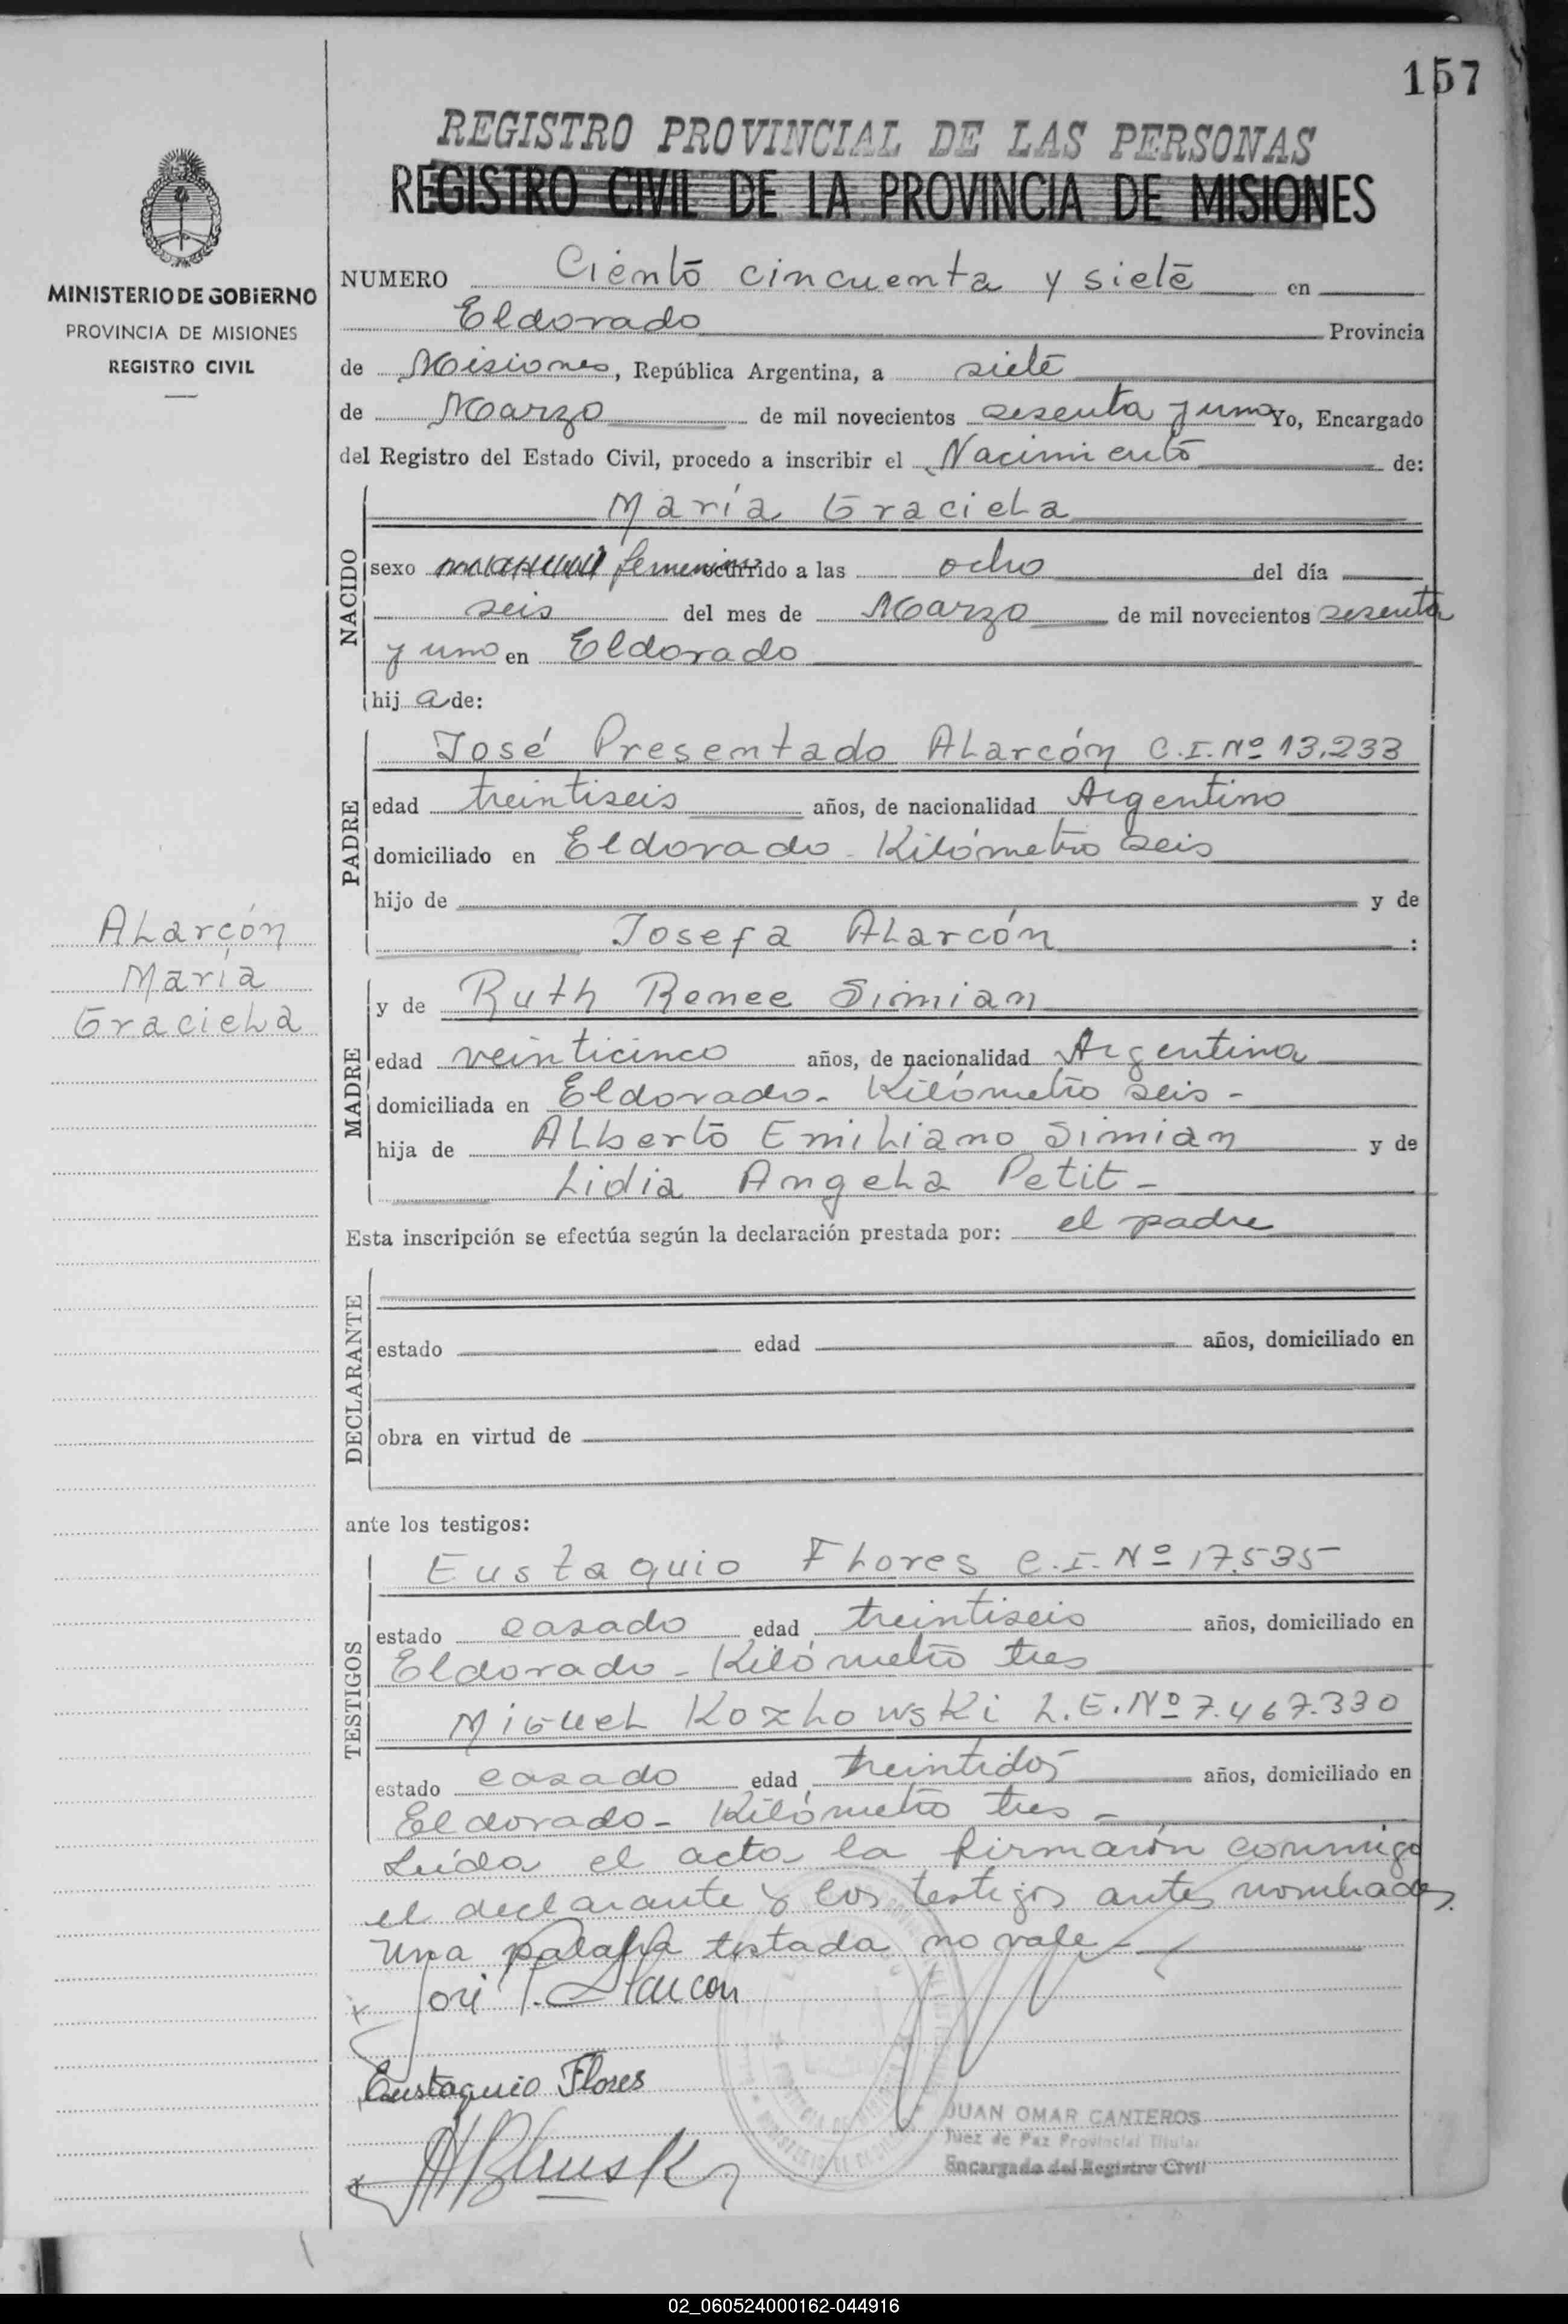 157
REGISTRO PROVINCIAL DE LAS PERSONAS
REGISTRO CIVIL DE LA PROVINCIA DE MISIONES
MINISTERIO DE GOBIERNO
PROVINCIA DE MISIONES
REGISTRO CIVIL
NUMERO Ciento cincuenta y siete en
Eldorado Provincia
de Misiones, República Argentina, a siete
de Marzo de mil novecientos sesenta y uno Yo, Encargado
del Registro del Estado Civil, procedo a inscribir el Nacimiento de:
NACIDO
María Graciela
sexo femenino ocurrido a las ocho del día
seis del mes de Marzo de mil novecientos sesenta
y uno en Eldorado
hij a de:
PADRE
José Presentado Alarcón C.I. Nº 13.233
edad treintiseis años, de nacionalidad Argentino
domiciliado en Eldorado - Kilómetro seis
hijo de y de
Josefa Alarcón :
Alarcón
María
Graciela
MADRE
y de Ruth Renee Simian
edad veinticinco años, de nacionalidad Argentina
domiciliada en Eldorado - Kilómetro seis -
hija de Alberto Emiliano Simian y de
Lidia Angela Petit -
Esta inscripción se efectúa según la declaración prestada por: el padre
DECLARANTE
estado edad años, domiciliado en
obra en virtud de
ante los testigos:
TESTIGOS
Eustaquio Flores C.I. Nº 17.535
estado casado edad treintiseis años, domiciliado en
Eldorado - Kilómetro tres
Miguel Kozlowski L.E. Nº 7.467.330
estado casado edad treintidos años, domiciliado en
Eldorado - Kilómetro tres -
Leída el acta la firmarón conmigo
el declarante y los testigos antes nombrados.
Una palabra testada no vale -
José P. Alarcón
Eustaquio Flores
JUAN OMAR CANTEROS
Juez de Paz Provincial Titular
Encargado del Registro Civil
02_060524000162-044916